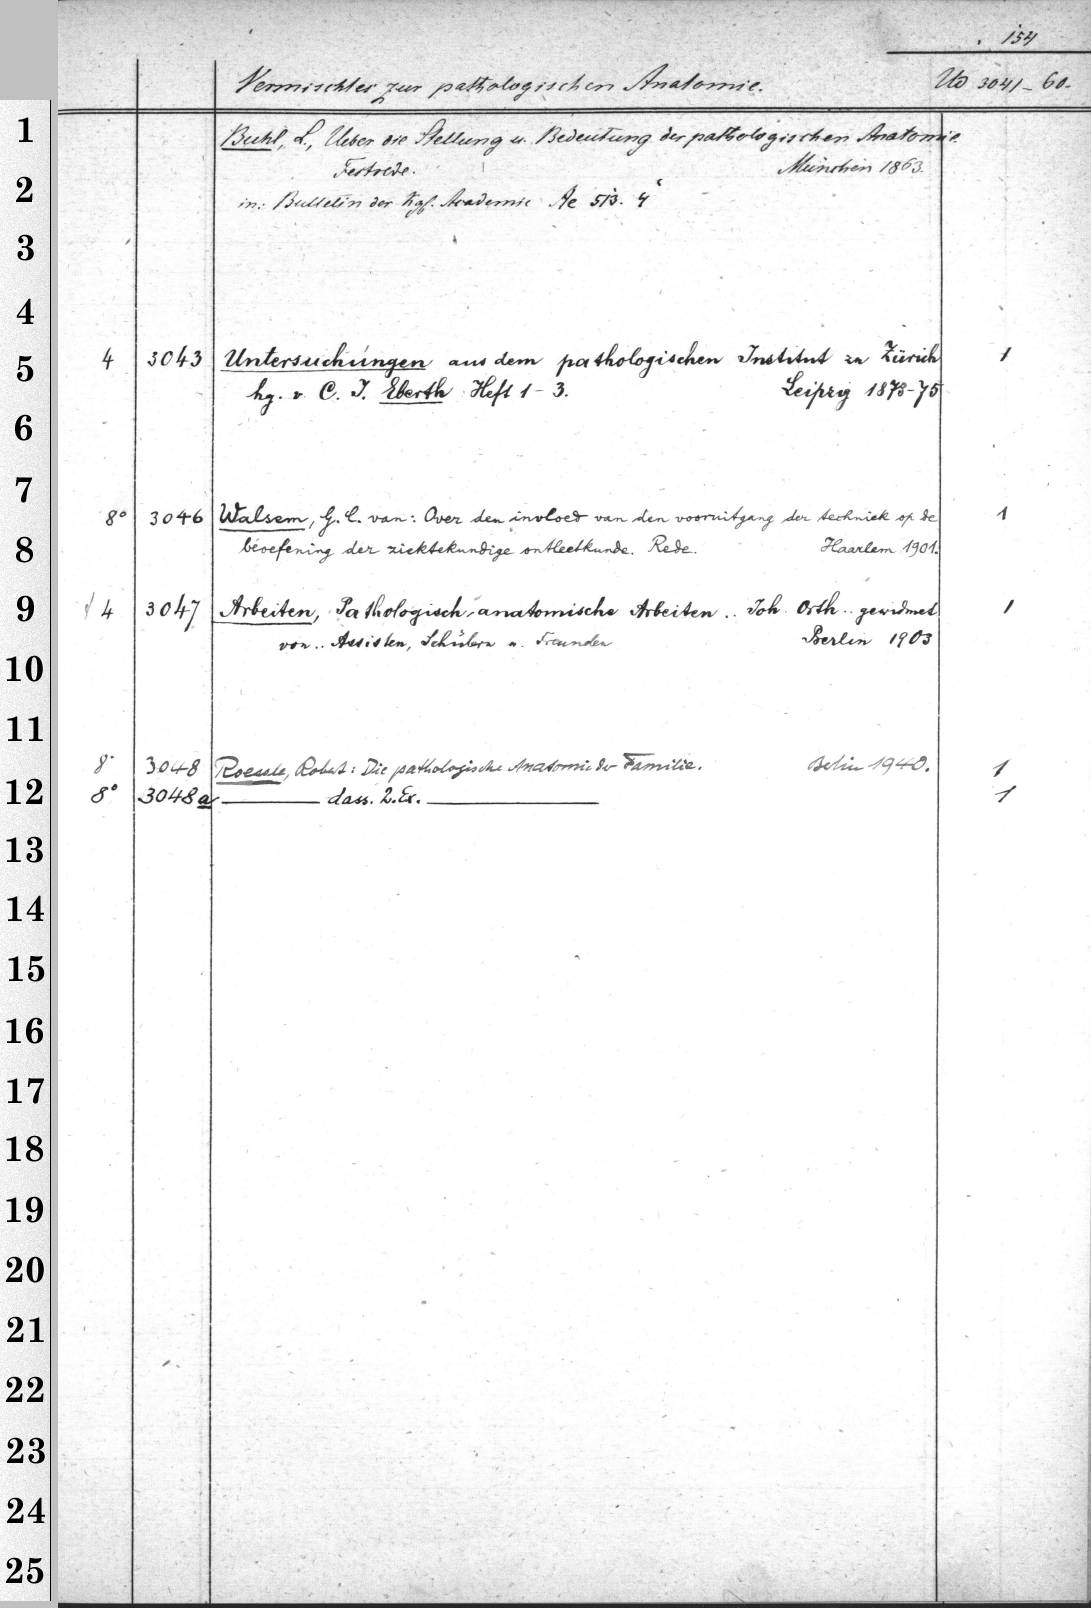 154
Vermischtes zur pathologischen Anatomie. Ud 3041-60.
Buhl, L., Ueber die Stellung u. Bedeutung der pathologischen Anatomie.
Festrede. München 1863.
in: Bulletin der Kgl. Academie Ae 513. 4°
4 3043 Untersuchungen aus dem pathologischen Institut zu Zürich 1
hg. v. C. J. Eberth Heft 1-3. Leipzig 1873-75
8° 3046 Walsem, G. C. van: Over den invloed van den vooruitgang der techniek op de 1
beoefening der ziektekundige ontleetkunde. Rede. Haarlem 1901.
4 3047 Arbeiten, Pathologisch-anatomische Arbeiten .. Joh. Orth .. gewidmet 1
von .. Assisten, Schülern u. Freunden Berlin 1903
8° 3048 Roessle, Robert: Die pathologische Anatomie der Familie. Berlin 1940. 1
8° 3048a ——— dass. 2. Ex. ——— 1
1
2
3
4
5
6
7
8
9
10
11
12
13
14
15
16
17
18
19
20
21
22
23
24
25